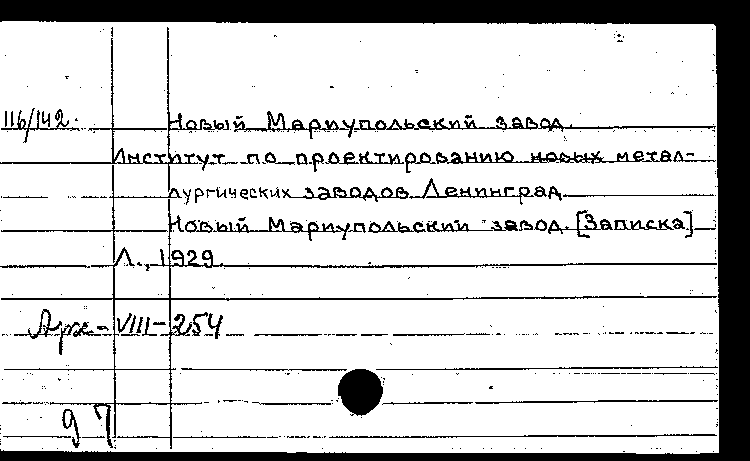 116/142. Новый Мариупольский завод.
Институт по проектированию новых метал-
лургических заводов Ленинград
Новый Мариупольский завод. [Записка]
Л., 1929.
Арх-VIII-254
97